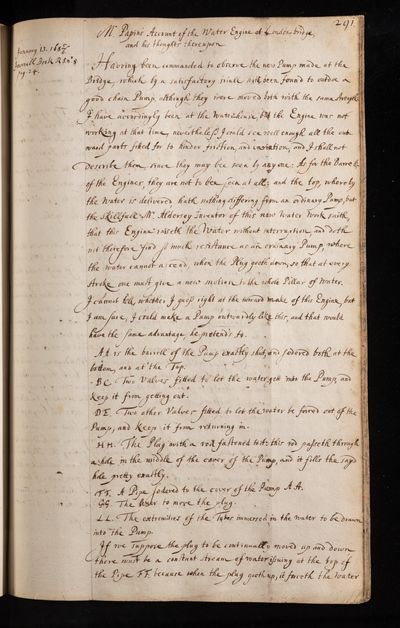 291
Mr Papins Account of the Water Engine at London bridge,
and his thoughts thereupon.
January 13. 168
Journall Book R. S. No 8
pag. 24.
Having been commanded to observe the new Pump made at the
Bridge, which by a satisfactory triale hath been found to outdoe a
good chain Pump, although they were moved both with the same strength
I have accordingly been at the Waterhouse, but the Engine was not
working at that time, nevertheless I could see well enough all the out
ward parts fitted for to hinder friction, and variation, and I shall not
describe them, since they may bee seen by anyone: As for the Barrells
of the Engines, they are not to bee seen at all; and the top, whereby
the water is delivered hath nothing differing from an ordinary Pump, but
the Skillfull Mr Aldersey Inventor of this new water work saith,
that this Engine raiseth the Water without interruption, and doth
not therefore find so much resistance as an ordinary Pump, where
the water cannot ascend, when the Plug goeth down, so that at every
stroke one must give a new motion to the whole Pillar of Water.
I cannot tell, whether I guess right at the inward make of this Engine, but
I am sure, I could make a Pump outwardly like this, and that would
have the same advantage he pretends to.
AA is the barrell of the Pump exactly shut, and sodered both at the
bottom, and at the Top.
BC. Two Valves fitted to let the water gett into the Pump, and
keep it from getting out.
DE. Two other Valves fitted to let the water be forced out of the
Pump, and keep it from returning in.
HH. The Plug with a rod fastened to it: this rod passeth through
a hole in the middle of the cover of the Pump, and it fills the sayd
hole pretty exactly.
FF. A Pipe sodered to the cover of the Pump AA.
GG. The to move the plug.
LL. The extremities of the Tubes immersed in the water to be drawn
into the Pump.
If we suppose the plug to be continually moved up and down
there must be a constant stream of water issuing at the top of
the Pipe FF. because when the plug goeth up, it forceth the water